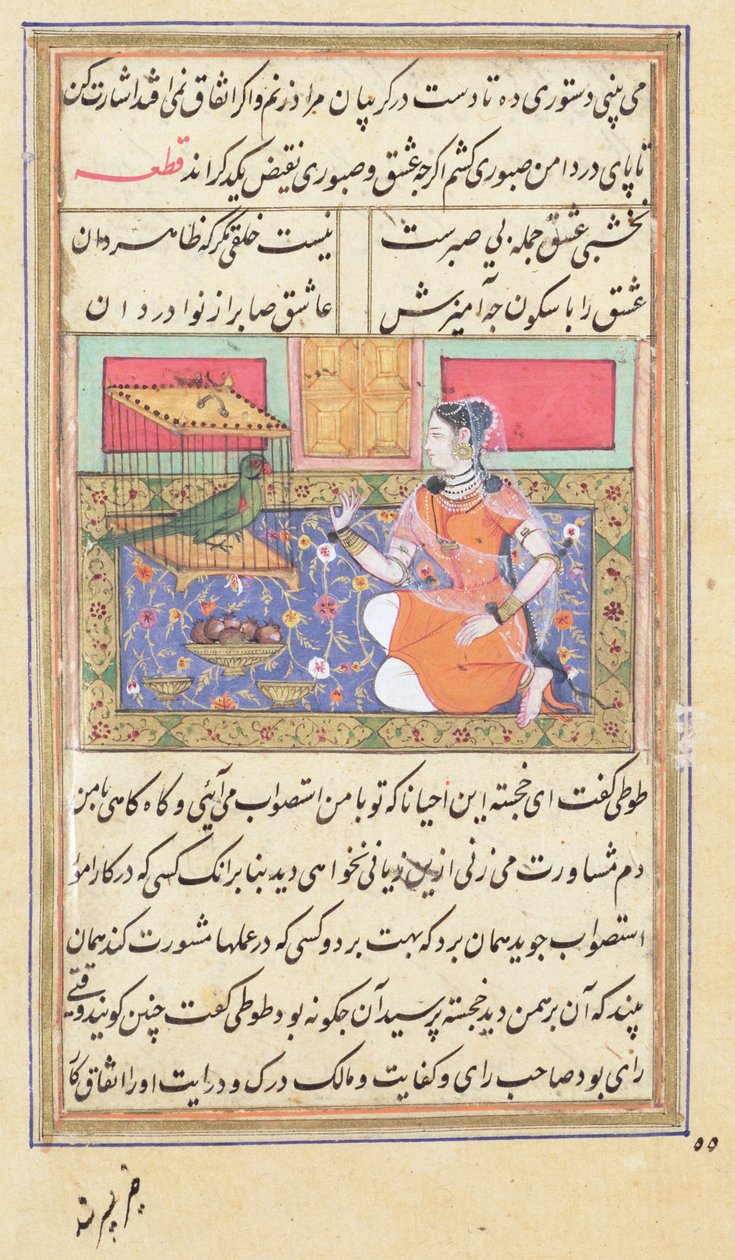 می بینی دستوری ده تا دست در کریبان مراد زنم و اکر اتفاق نمی افتد اشارت کن
تا پای در دامن صبوری کشم اکرجه عشق و صبوری نقیض یکدکراند قطعه
نخشبی عشق جمله بی صبرست نیست خلقی مکر که ظاهر دان
عشق را با سکون جه آمیزش عاشق صابر از نوادر دان
طوطی کفت ای خجسته این احیانا که تو با من استصواب می آیئی و کاه کاهی با من
دم مشاورت می زنی ازین زیانی نخواهی دید بنا برانک کسی که در کارها
استصواب جوید همان برد که بهت برد و کسی که در عملها مشورت کند همان
بیند که آن برهمن دید خجسته پرسید آن جکونه بود طوطی کفت جنین کویند وقتی
رای بود صاحب رای و کفایت و مالک درک و درایت او را اتفاق
۵۵